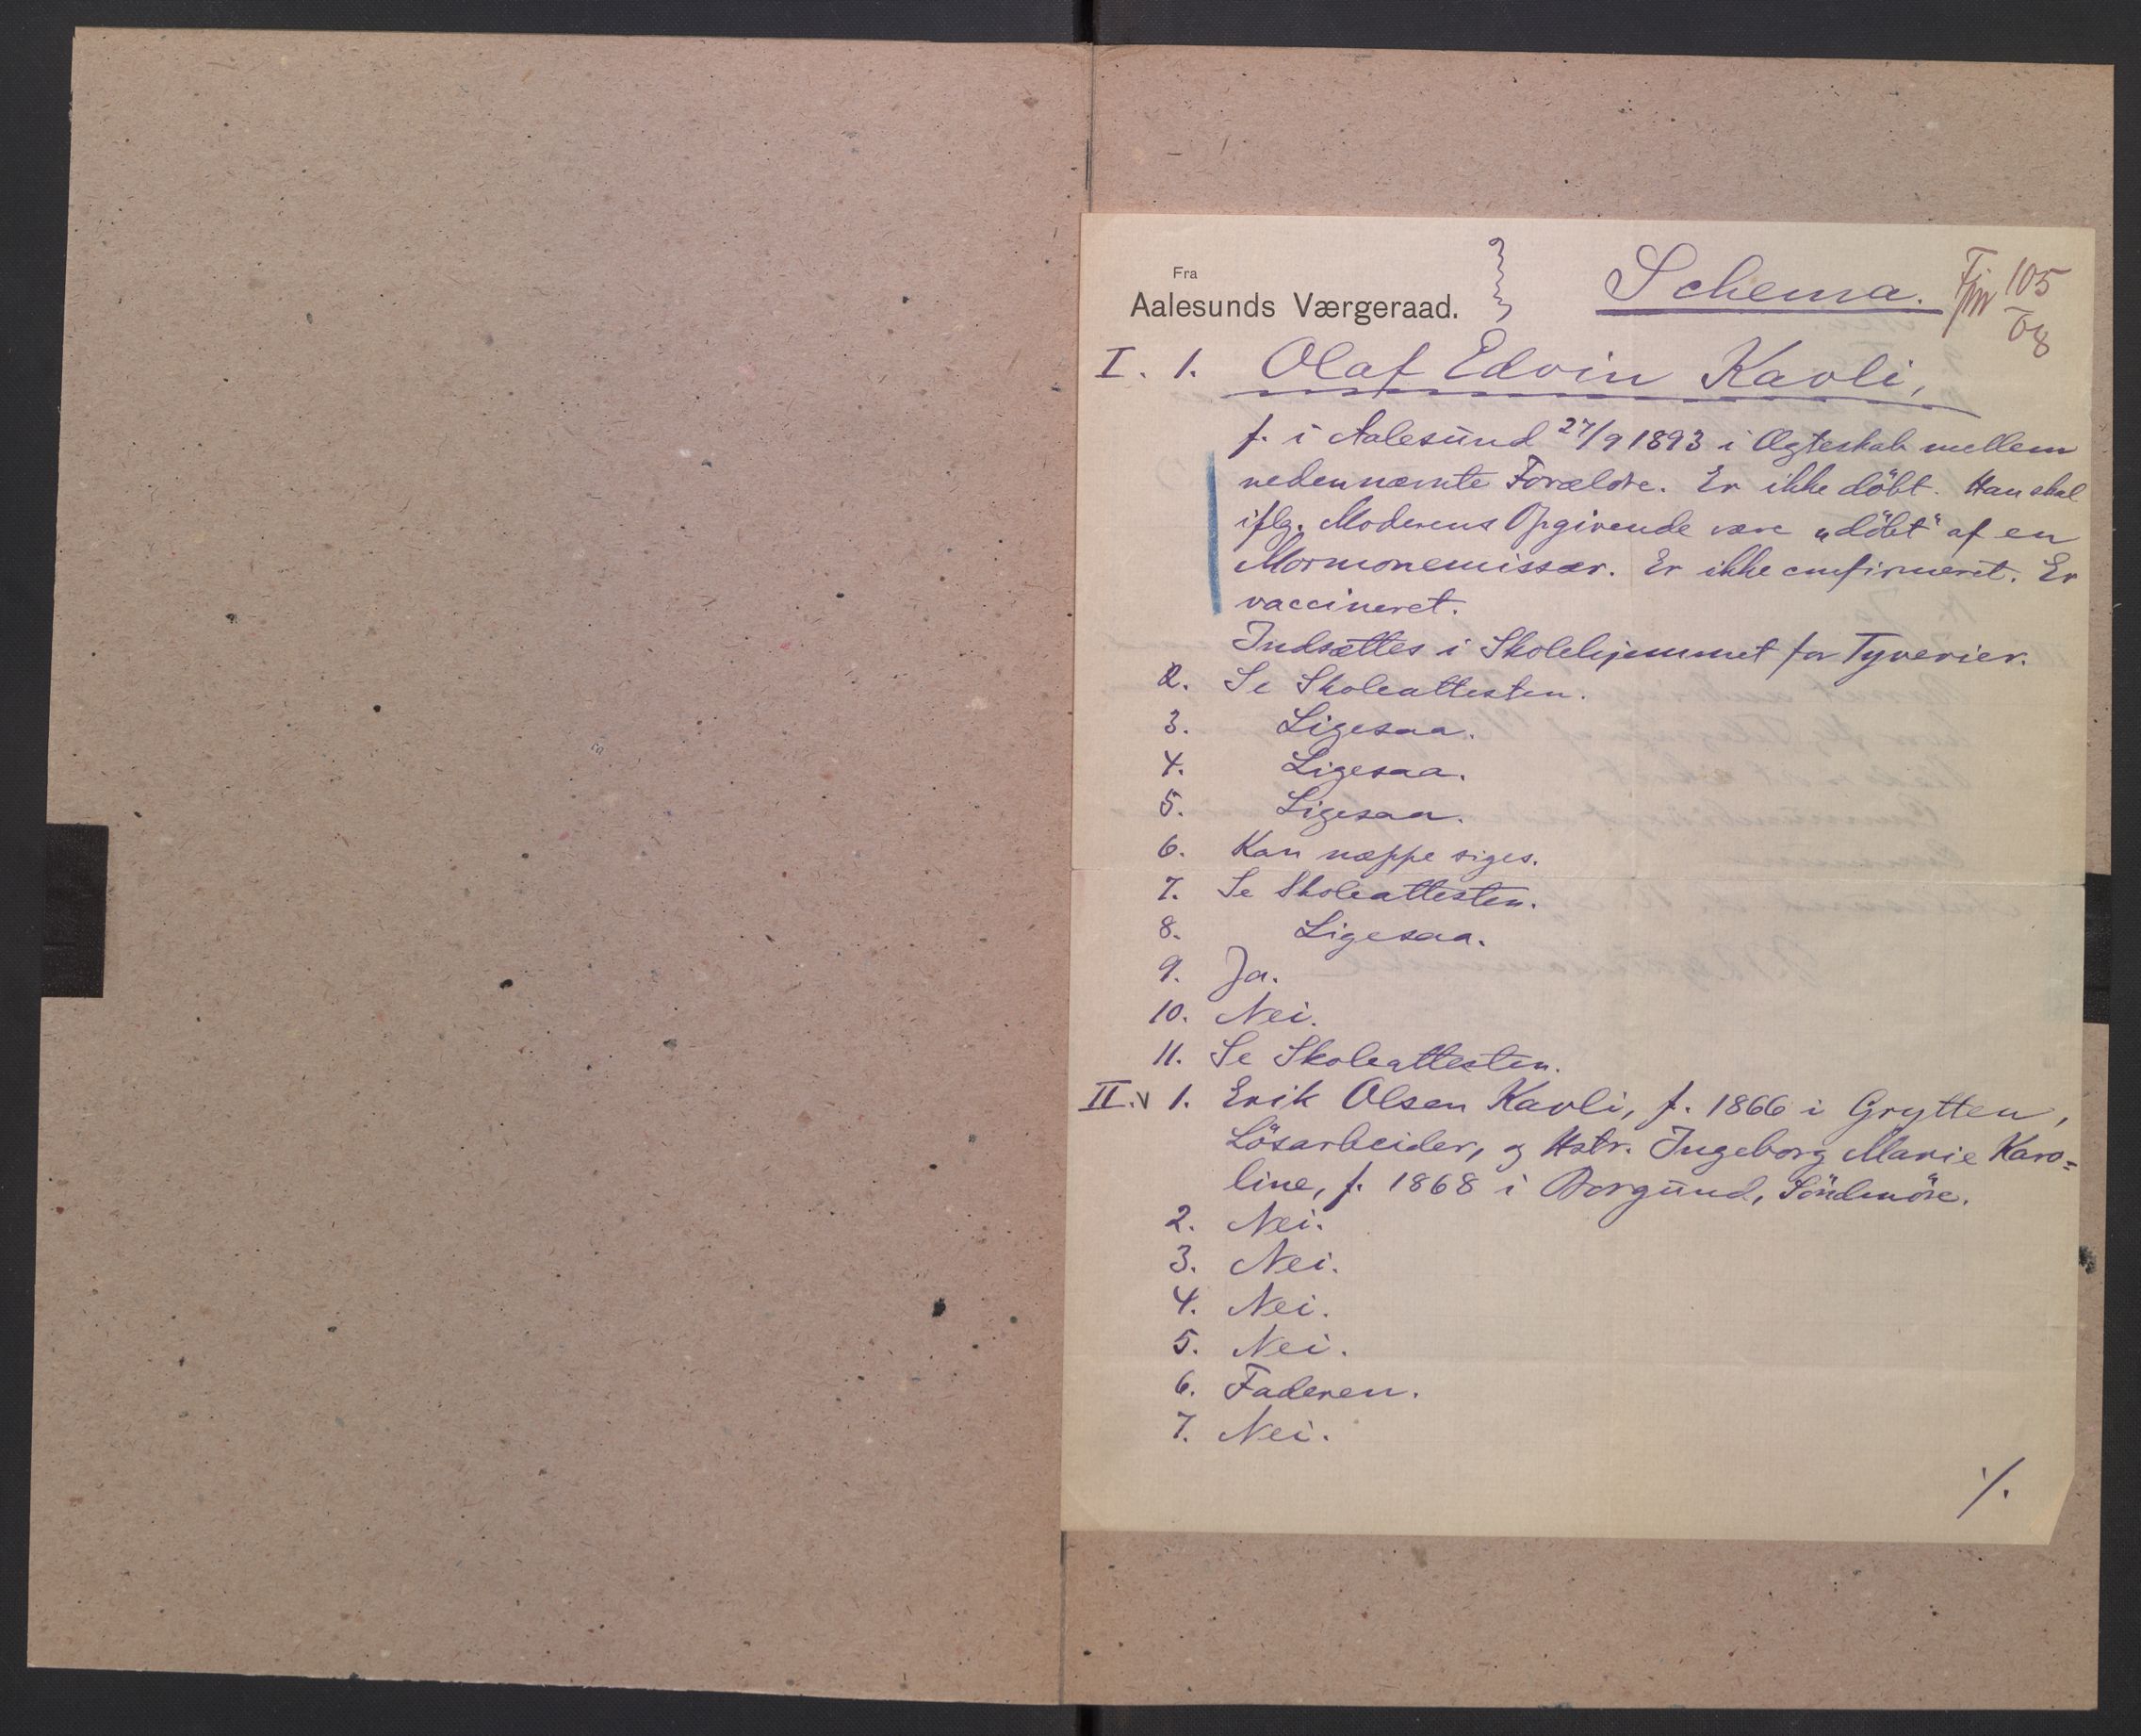 Fra
Aalesunds Værgeraad.
Schema.
105
08
I. 1. Olaf Edvin Kavli,
f. i Aalesund 27/9 1893 i Ægteskab mellem
nedennævnte Forældre. Er ikke döbt. Han skal
iflg. Moderens Opgivende være "döbt" af en
Mormonemissær. Er ikke confirmeret. Er
vaccineret.
Indsættes i Skolehjemmet for Tyverier.
2. Se Skoleattesten.
3. Ligesaa.
4. Ligesaa.
5. Ligesaa.
6. Kan næppe siges.
7. Se Skoleattesten.
8. Ligesaa.
9. Ja.
10. Nei.
11. Se Skoleattesten.
II. 1. Erik Olsen Kavli, f. 1866 i Grytten,
Lösarbeider, og Hstr. Ingeborg Marie Karo=
line, f. 1868 i Borgund, Söndmöre.
2. Nei.
3. Nei.
4. Nei.
5. Nei.
6. Faderen.
7. Nei.
./.